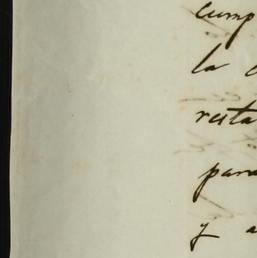 cump
la c
resta
para
y a